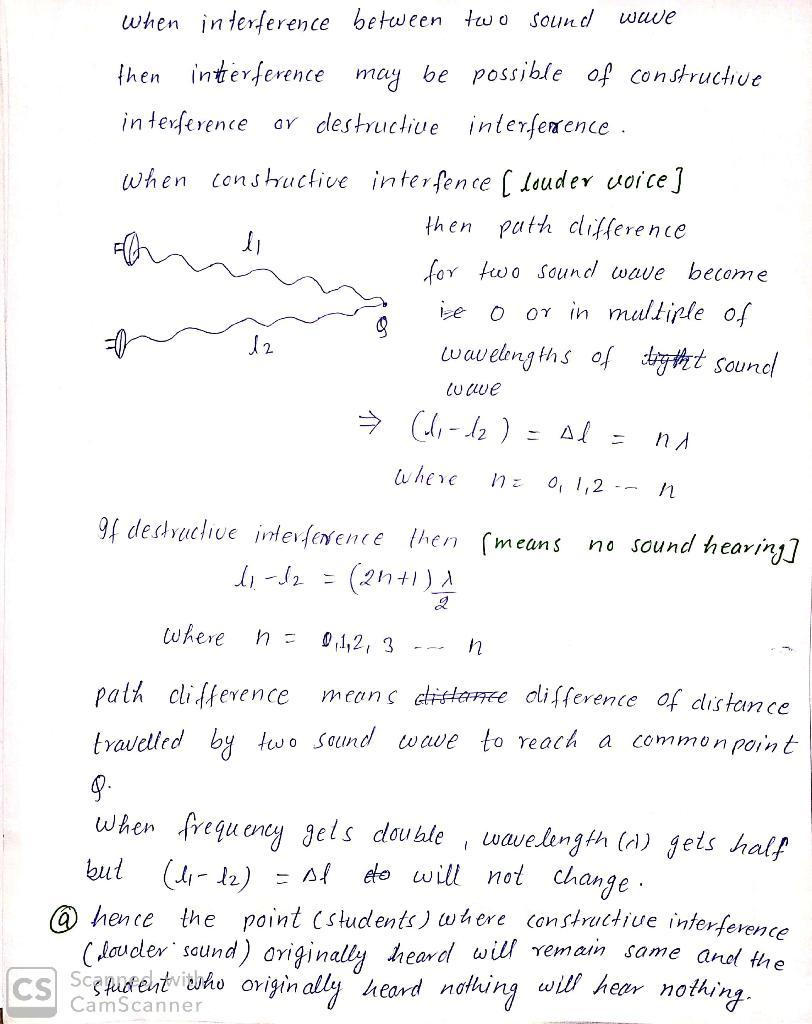 when interference between two sound wave
then interference may be possible of constructive
interference or destructive interference.
when constructive interfence [louder voice]
then path difference
l1
for two sound wave become
ise 0 or in multiple of
Q
l2
wavelengths of light sound
wave
⇒ (l1-l2) = Δl = nλ
where n = 0, 1, 2 --- n
If destructive interference then [means no sound hearing]
l1-l2 = (2n+1) λ/2
where n = 0,1,2, 3 --- n
path difference means distance difference of distance
travelled by two sound wave to reach a common point
Q.
when frequency gets double, wavelength (λ) gets half
but (l1-l2) = Δl do will not change.
@ hence the point (students) where constructive interference
(louder sound) originally heard will remain same and the
student who originally heard nothing will hear nothing.
CS Scanned with
CamScanner